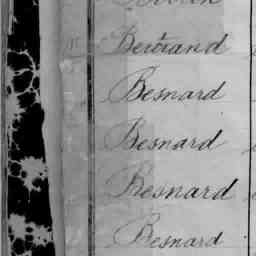 Bertrand
Besnard
Besnard
Besnard
Besnard